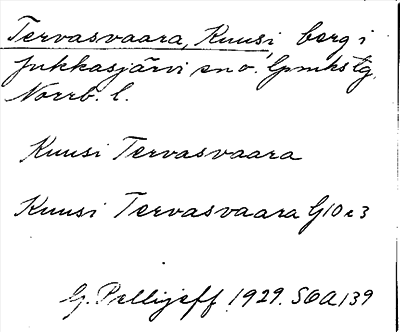 Tervasvaara, Kuusi, berg i
Jukkasjärvi sn o. lpmkstg,
Norrb. l.
Kuusi Tervasvaara
Kuusi Tervasvaara G10e3
G. Pellijeff 1929. SOA 139